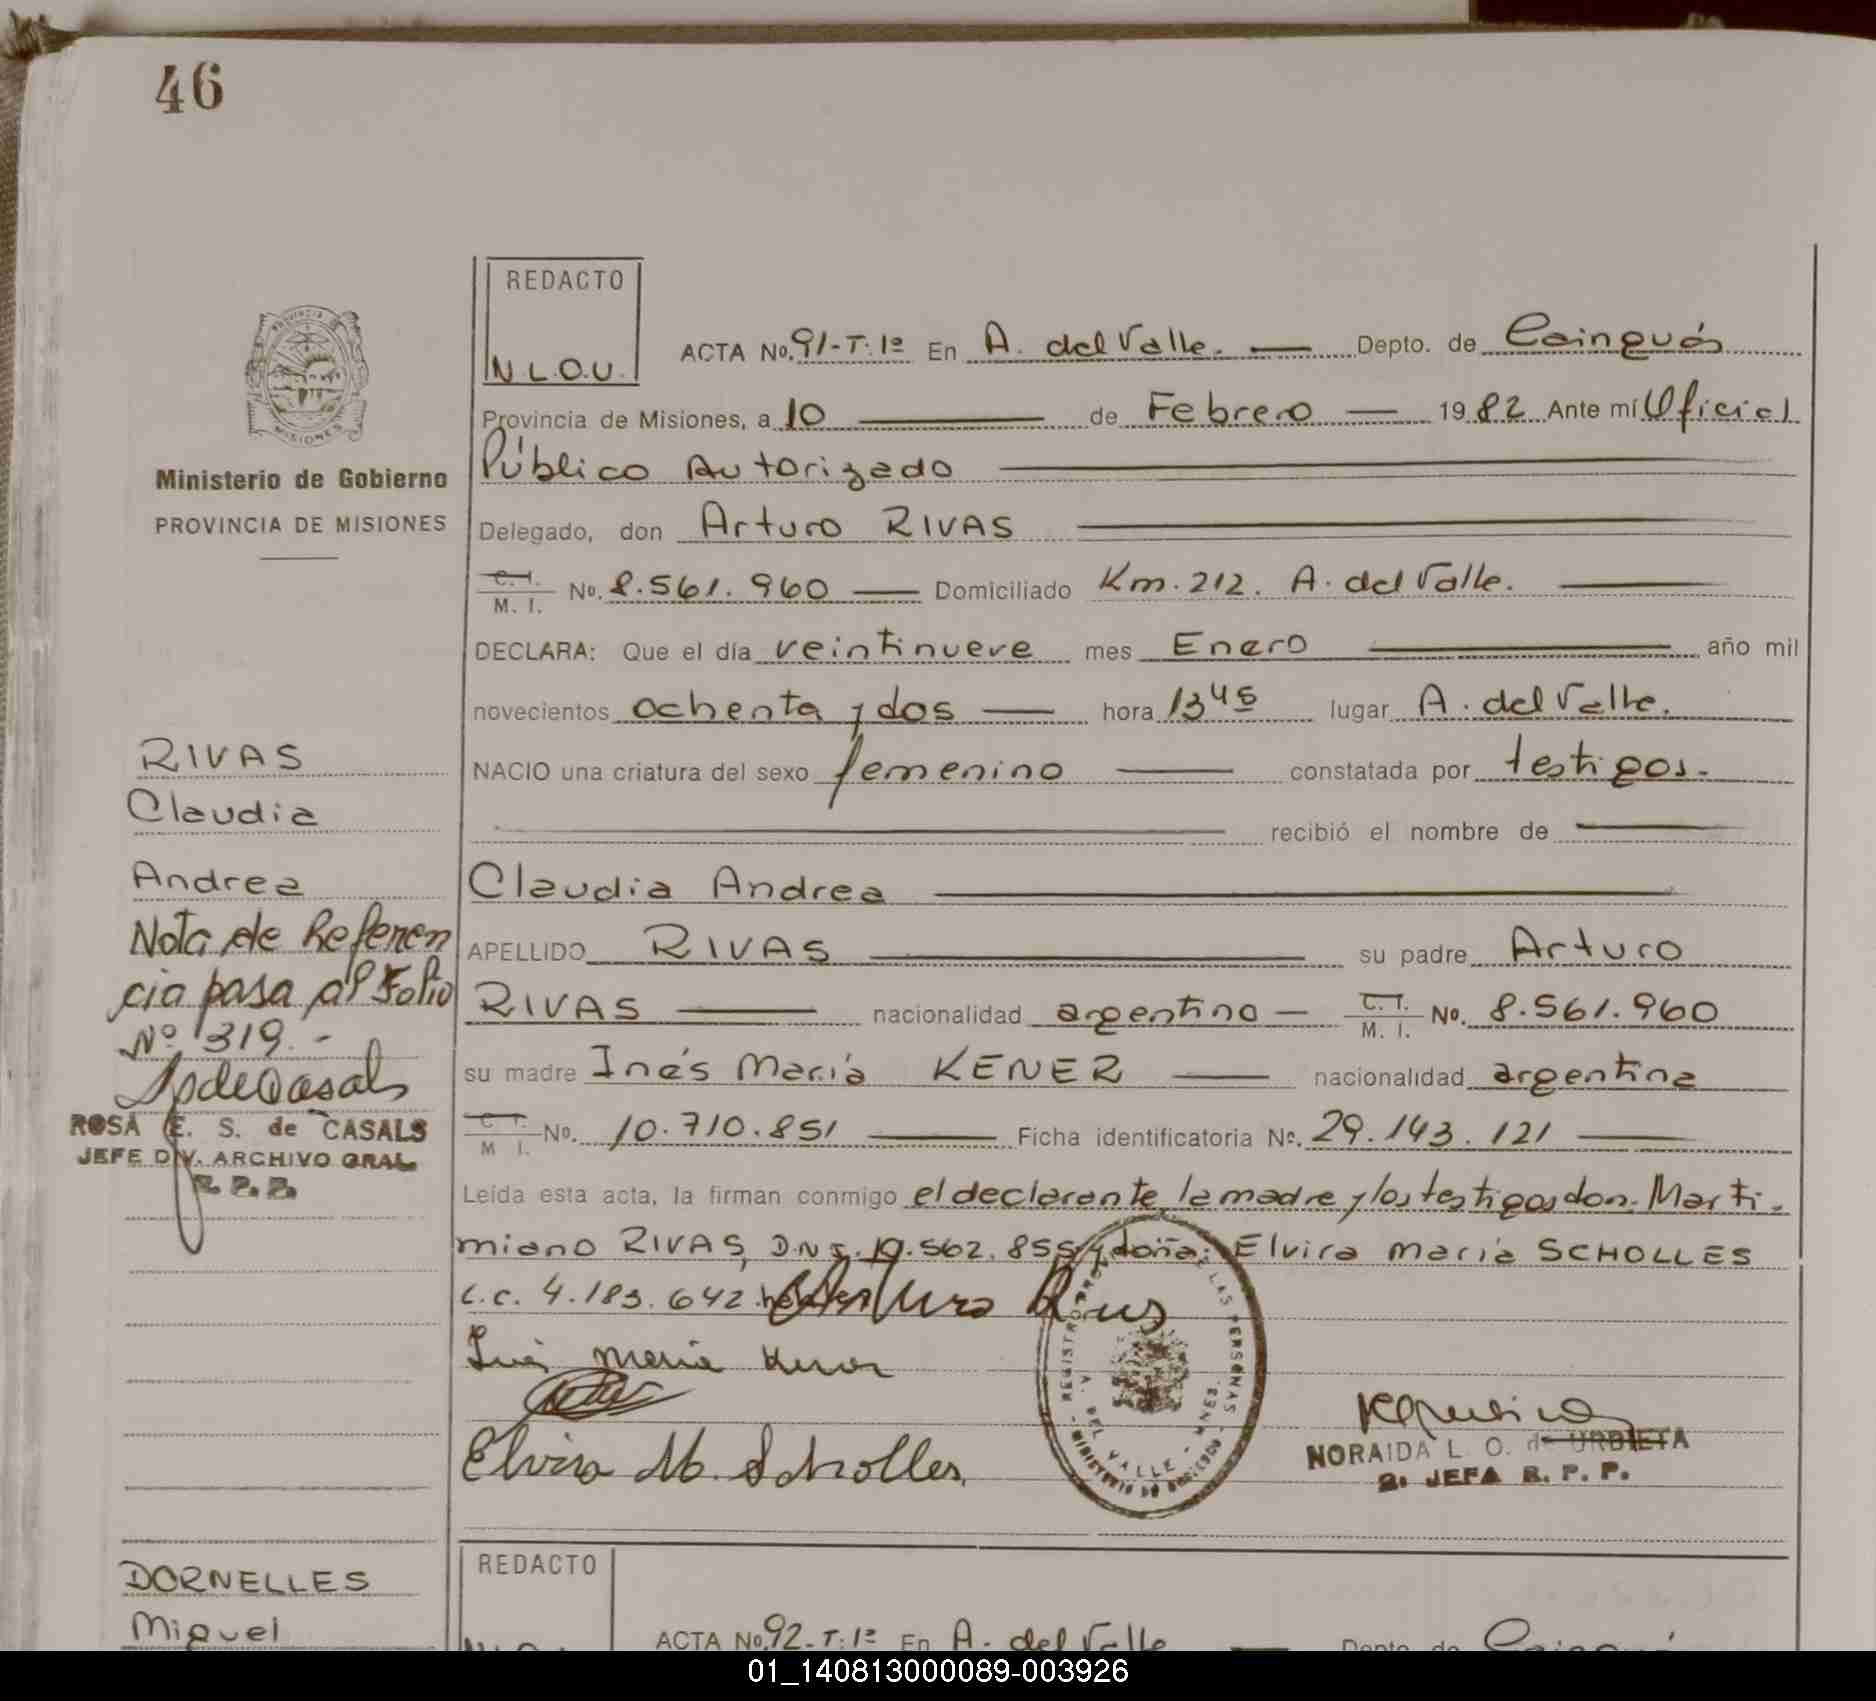 46
REDACTO
N.L.O.U.
ACTA No. 91-T:1º En A. del Valle. Depto. de Cainguás
Provincia de Misiones, a 10 de Febrero 1982 Ante mí Oficial
Público Autorizado
Delegado, don Arturo RIVAS
C. I. M. I. No. 8.561.960 Domiciliado Km. 212. A. del Valle.
DECLARA: Que el día veintinueve mes Enero año mil
novecientos ochenta y dos hora 13 45 lugar A. del Valle.
NACIO una criatura del sexo femenino constatada por testigos.
recibió el nombre de
Claudia Andrea
APELLIDO RIVAS su padre Arturo
RIVAS nacionalidad argentino C. I. M. I. No. 8.561.960
su madre Inés María KENER nacionalidad argentina
C. I. M. I. No. 10.710.851 Ficha identificatoria No. 29.143.121
Leída esta acta, la firman conmigo el declarante, la madre y los testigos don: Marti-
miano RIVAS, D.N.I. 19.562.855 y doña: Elvira María SCHOLLES
L.C. 4.183.642
Arturo Rivas
Inés María Kener
Elvira M. Scholles
REGISTRO PROV. DE LAS PERSONAS
A. DEL VALLE - MNES.
MINISTERIO DE GOBIERNO
NORAIDA L. O. de URBIETA
2. JEFA R. P. P.
PROVINCIA
MISIONES
Ministerio de Gobierno
PROVINCIA DE MISIONES
RIVAS
Claudia
Andrea
Nota de Referen
cia pasa al Folio
Nº 319.-
ROSA E. S. de CASALS
JEFE DIV. ARCHIVO GRAL.
R. P. P.
DORNELLES
Miguel
REDACTO
ACTA No. 92-T:1º En A. del Valle Depto. de
01_140813000089-003926